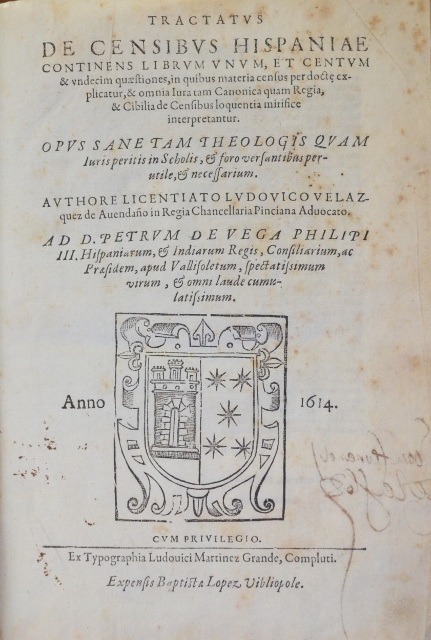 TRACTATVS
DE CENSIBVS HISPANIAE
CONTINENS LIBRVM VNVM, ET CENTVM
& vndecim quæstiones, in quibus materia census per doctę ex-
plicatur, & omnia Iura tam Canonica quam Regia,
& Cibilia de Censibus loquentia mirifice
interpretantur.
OPVS SANE TAM THEOLOGIS QVAM
Iuris peritis in Scholis, & foro versantibus per-
utile, & necessarium.
AVTHORE LICENTIATO LVDOVICO VELAZ-
quez de Auendaño in Regia Chancellaria Pinciana Aduocato.
AD D. PETRVM DE VEGA PHILIPI
III. Hispaniarum, & Indiarum Regis, Consiliarium, ac
Præsidem, apud Vallisoletum, spectatissimum
virum, & omni laude cumu-
latissimum.
Anno 1614.
CVM PRIVILEGIO.
Ex Typographia Ludouici Martinez Grande, Compluti.
Expensis Baptista Lopez Vibliopole.